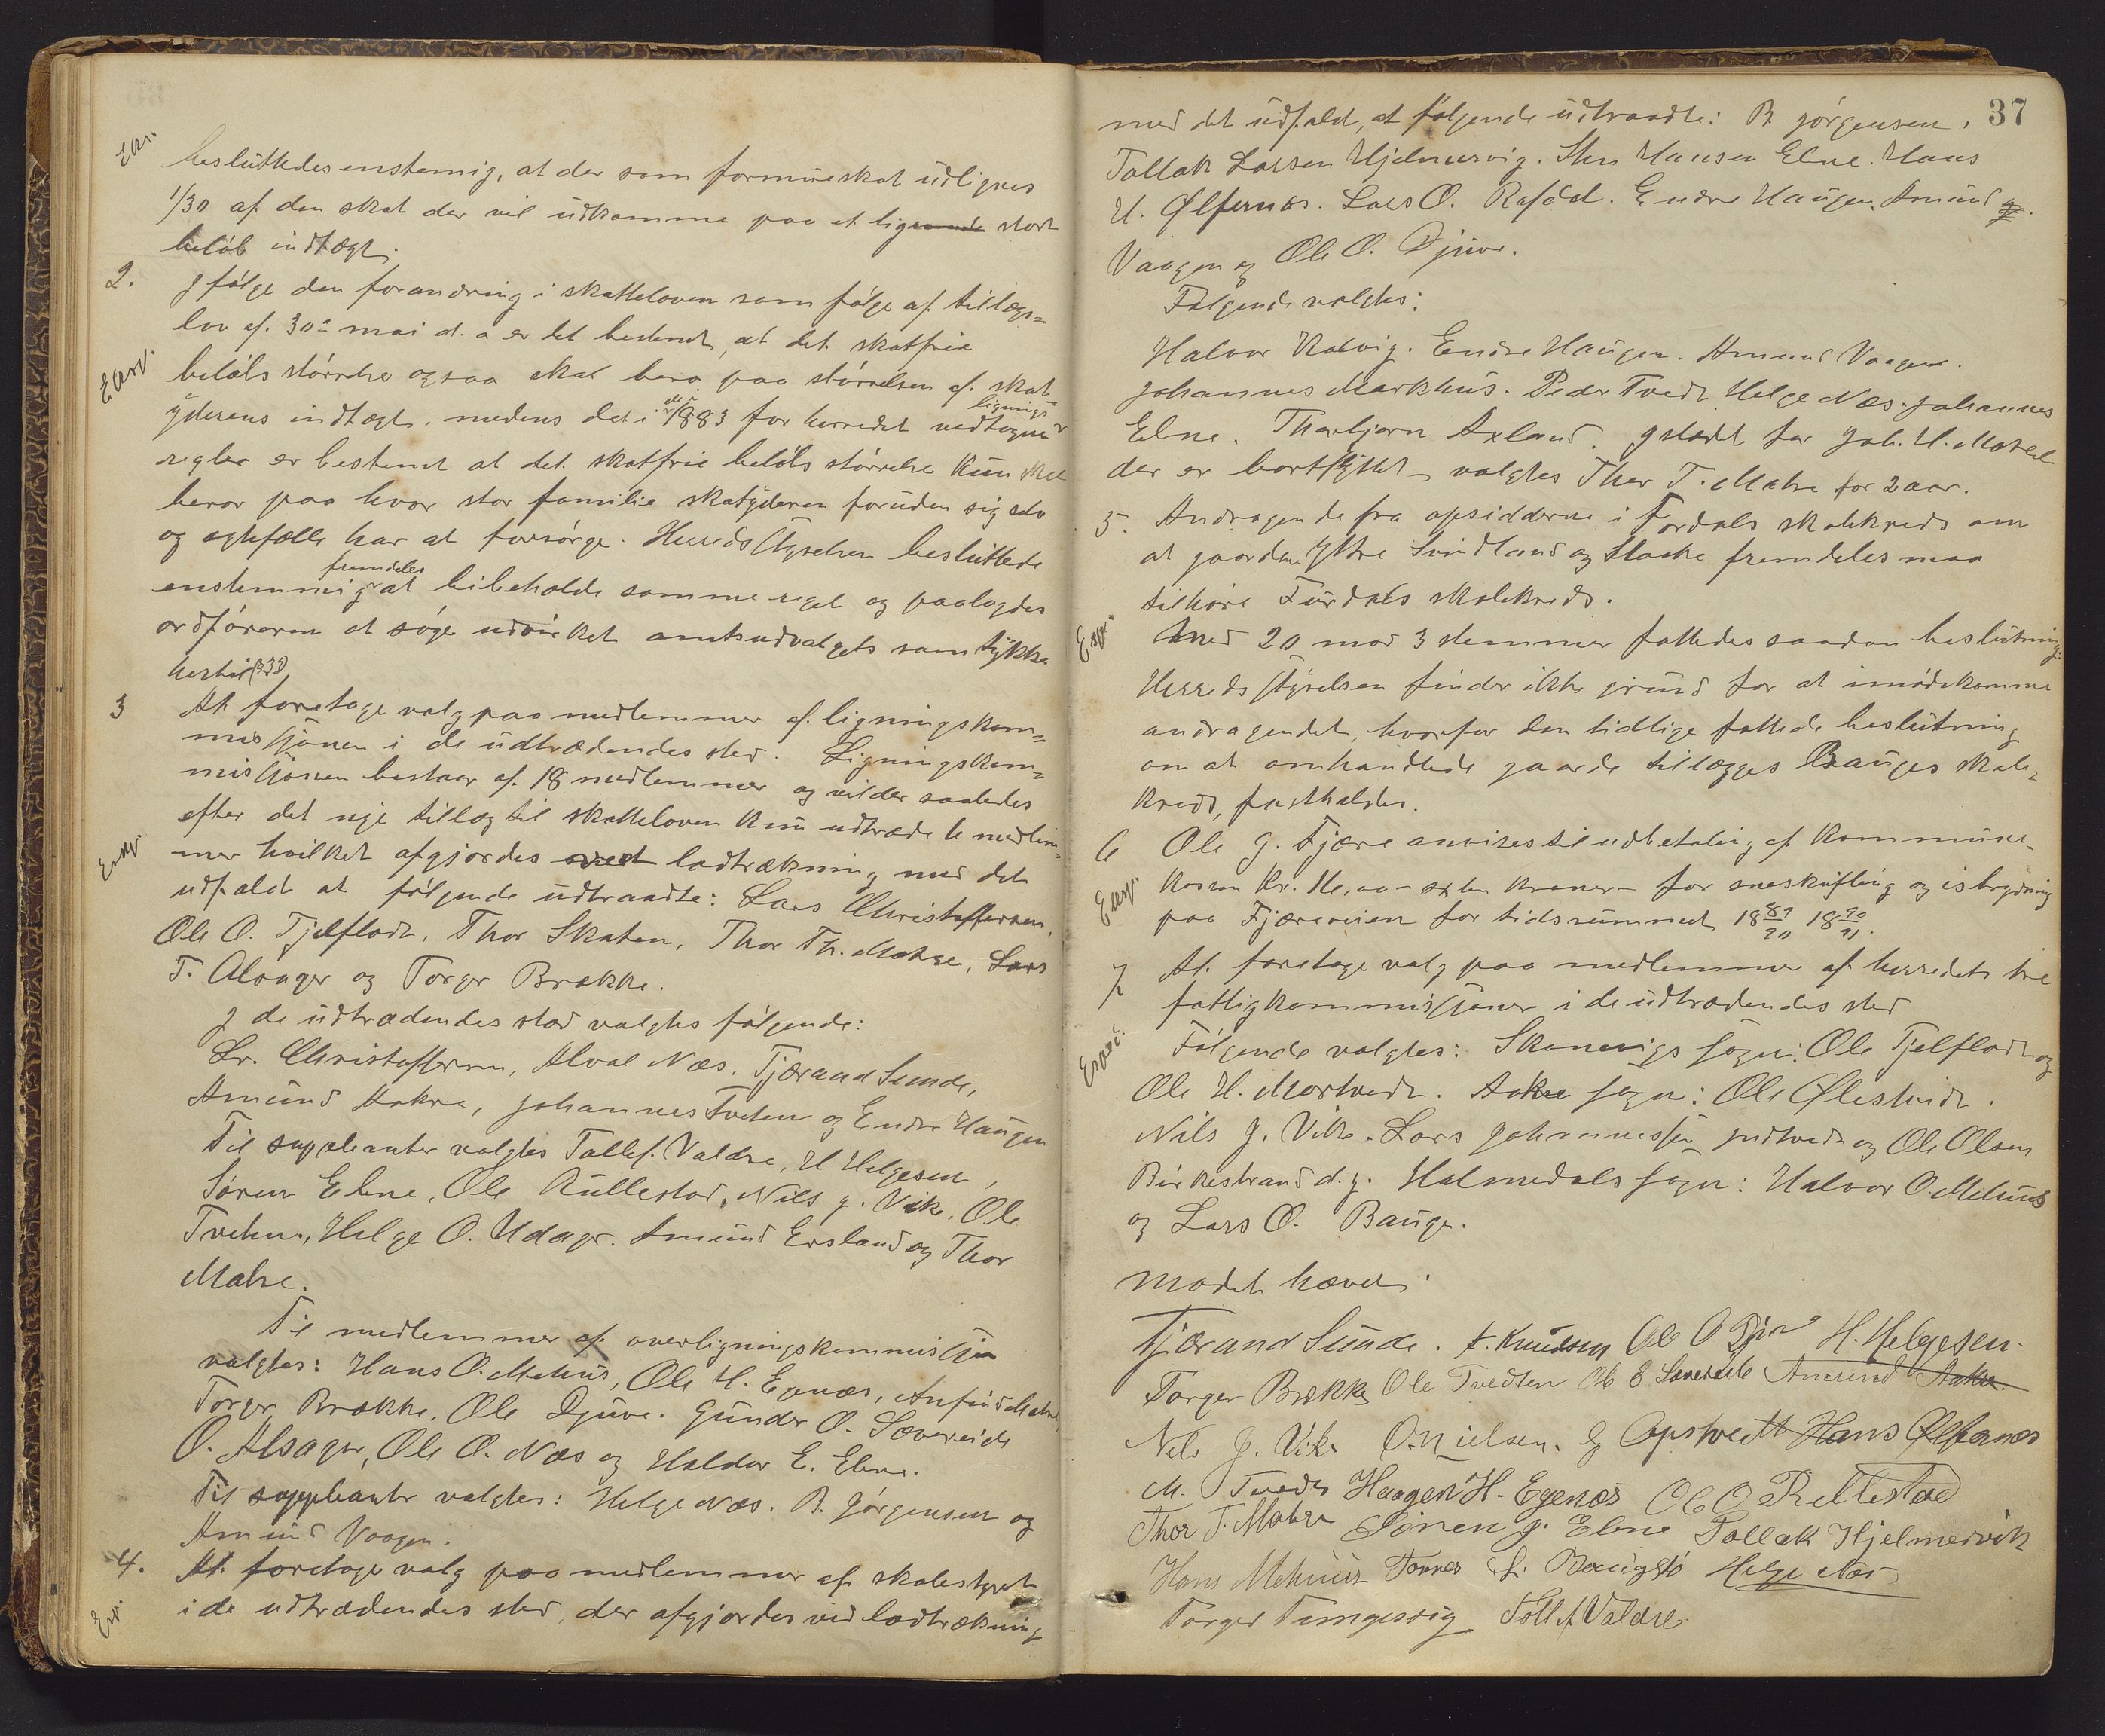 Exv.
besluttedes enstemig, at der som formueskat udlignes
1/30 af den skat der vil udkomme paa et lige stort
beløb indtægt.
2. I følge den forandring i skatteloven som følge af tillægs=
lov af 30te mai d. a er det bestemt, at det skatfrie
Exv.
beløbs størrelse ogsaa skal bero paa størrelsen af skat-
yderens indtægt, medens det i de i 1883 for herredet vedtagne lignings
regler er bestemt at det skatfrie beløbs størrelse kun skal
beror paa hvor stor familie skatyderen foruden sig selv
og egtefælle har at forsørge. Herredsstyrelsen besluttede
enstemmig fremdeles at bibeholde samme regel og paalagdes
ordføreren at søge udvirket amtsudvalgets samtykke
hertil (§33)
3 At foretage valg paa medlemmer af ligningskom=
missjonen i de udtrædendes sted. Ligningskom=
missjonen bestaar af 18 medlemmer og vil der saaledes
efter det nye tillæg til skatteloven kun udtræde 6 medlem-
Exv.
mer hvilket afgjordes ved lodtrækning med det
udfald at følgende udtraadte: Lars Christoffersen,
Ole O. Tjelflodt, Thor Skaten, Thor Th. Matre, Lars
T. Alsager og Torger Brække.
I de udtrædendes sted valgtes følgende:
Lr. Christoffersen, Alval Næs, Tjærand Sunde,
Amund Aakra, Johannes Tveten og Endre Haugen
Til suppleanter valgtes Tollef Valdre, H Helgesen,
Søren Ebne, Ole Rullestad, Nils J. Vik, Ole
Tveten, Helge O. Udager. Amund Ersland og Thor
Matre.
Til medlemmer af overligningskommissjon
valgtes: Hans O. Mehus, Ole H. Egenæs, Anfind Matre
Torger Brække, Ole Djuve. Gunder O. Sævereide
O. Alsager, Ole O. Næs og Haldor E. Ebne.
Til suppleanter valgtes: Helge Næs. B. Jørgensen og
Amund Vaagen.
4. At foretage valg paa medlemmer af skolestyret
Exv.
i de udtrædendes sted, der afgjordes ved lodtrækning
37
med det udfald, at følgende udtraadte: B Jørgensen,
Tollak Larsen Hjelmervig. Hansen Ebne. Hans
H. Ølfernæs. Lars O. Rafdal. Endre Haugen. Amund
Vaagen og Ole O. Djuve.
Følgende valgtes:
Halvor Kalvig. Endre Haugen. Amund Vaagen.
Johannes Markhus. Peder Tvedt Helge Næs. Johannes
Ebne. Thorbjørn Axland. Istedet for Joh. H. Matre
der er bortflyttet valgtes Thor T. Matre for 2 aar.
5. Andragende fra opsidderne i Fordals skolekreds om
at gaardene Ytre Svindland og Stakke fremdeles maa
tilhøre Furdals skolekreds.
Exv.
Med 20 mod 3 stemmer fattedes saadan beslutning:
Herredsstyrelsen finder ikke grund for at imødekomme
andragendet, hvorfor den tidlige fattede beslutning
om at omhandlede gaarde tillægges Bauges skole=
kreds, fastholdes.
6 Ole J. Fjære anvises til udbetaling af kommune-
Exv.
kassen Kr. 16,00 – sexten kroner – for sneskufling og isbrydning
paa Fjæreveien for tidsrummet 18 89/90 18 90/91.
7 At foretage valg paa medlemmer af herredets tre
fattigkommissjoner i de udtrædendes sted
Exv.
Følgende valgtes: Skonevigs sogn: Ole Tjelflodt og
Ole H. Mortvedt. Aakre sogn: Ole Ølestveidt.
Nils J. Vik. Lars Johannessen Indtvedt og Ole Olsen
Birkestrand d. y. Holmedals sogn: Halvor O. Mehus
og Lars O. Bauge.
Mødet hævet.
Tjærand Sunde. T. Knudsen Ole O Djuve H. Helgesen.
Torger Brække Ole Tvedten Ole E Sævereide Amund Aakre.
Nils J. Vik O. Nielsen. Opstvedt Hans Ølfernæs
M. Tvedt Haagen H. Egenæs Ole O Rullestad
Thor T. Matre Sønen J. Ebne Tollak Hjelmervik
Hans Mehuus Tørres L. Baugstø Helge Næs
Torger Tungesvig Tollef Valdre